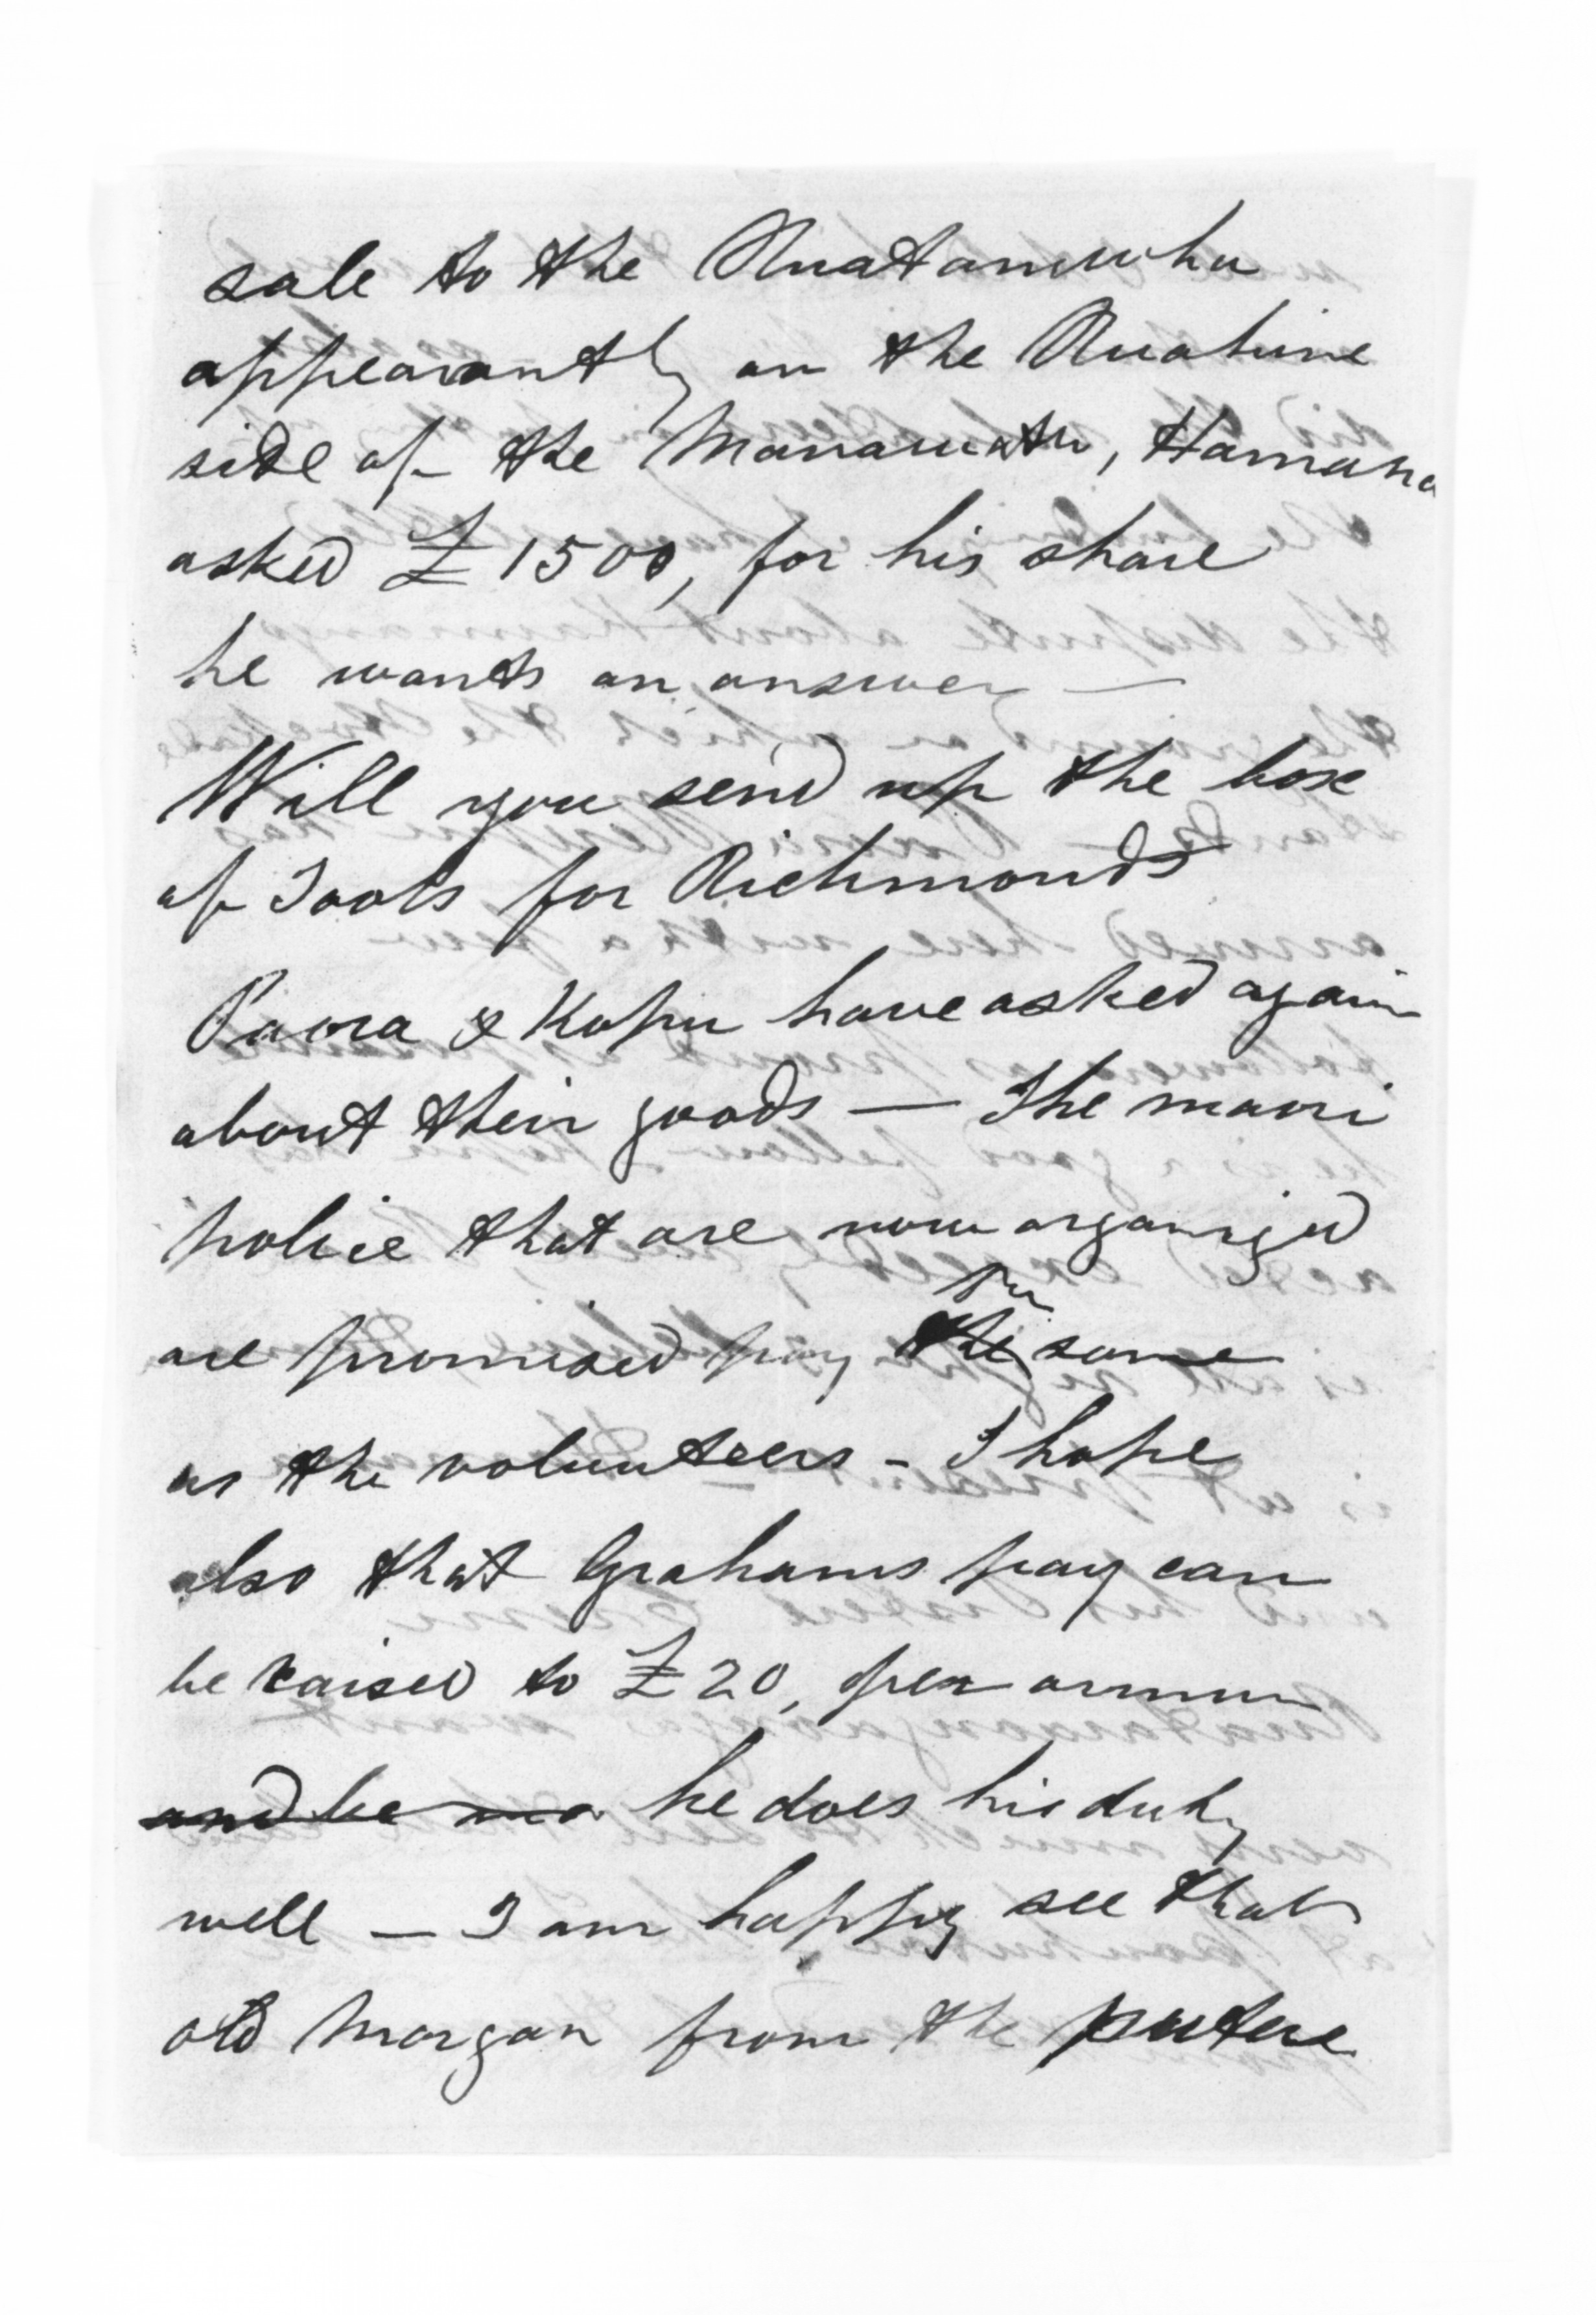 sale to the Ruataniwha
appearantly on the Ruahine
side of the Manawatu, Hamana
asked £1500, for his share
he wants an answer —
Will you send up the box
of Tools for Richmonds
Paora & Kopu have asked again
about their goods — The maori
police that are now organized
are promised pay the same
as the volunteers - I hope
also that Grahams pay can
be raised to £20, per annum
and be he does his duty
well — I am happy see that
old Morgan from the putere